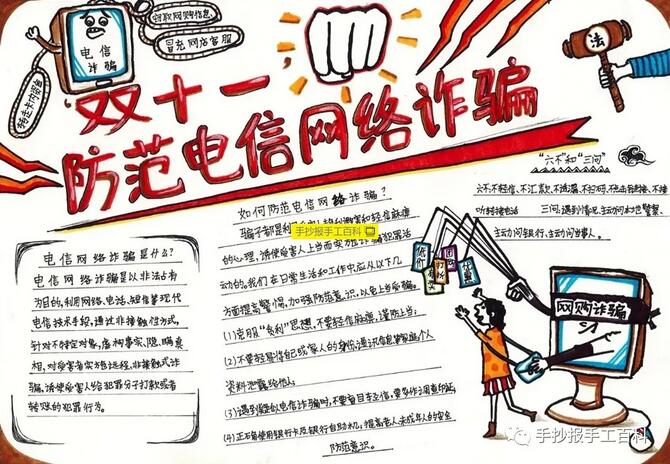 窃取网购信息
冒充网店客服
电信
诈骗
法
双十一
防范电信网络诈骗
“六不”和“三问”
六不:不轻信、不汇款、不透露、不扫码、不点击链接、不接
听转接电话
三问:遇到情况,主动问本地警察、
主动问银行、主动问当事人。
如何防范电信网络诈骗?
骗子都是利用
的心理,诱使受害人上当而实施诈骗犯罪活
动的。我们在日常生活和工作中应从以下几
方面提高警惕,加强防范意识,以免上当受骗。
(1)克服“贪利”思想,不要轻信麻痹,谨防上当;
(2)不要轻易将自己或家人的身份、通讯信息等家庭、个人
资料泄露给他人;
(3)遇到疑似电信诈骗时,不要盲目轻信,要多作调查印证;
(4)正确使用银行卡及银行自助机,提高老人、未成年人的安全
防范意识。
手抄报手工百科
电信网络诈骗是什么?
电信网络诈骗是以非法占有
为目的,利用网络、电话、短信等现代
电信技术手段,通过非接触性方式,
针对不特定对象,虚构事实、隐瞒真
相,对受害者实施远程、非接触式诈
骗,诱使受害人给犯罪分子打款或者
转账的犯罪行为。
低价
打折
网购诈骗
手抄报手工百科